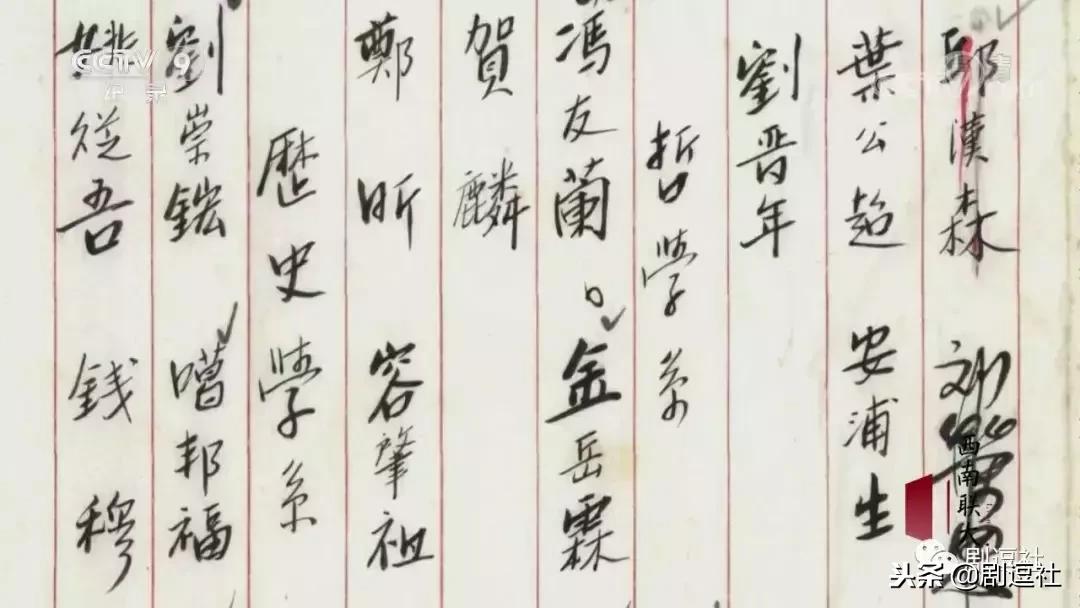 邱漢森
葉公超 安浦生
劉晋年
哲學系
馮友蘭 金岳霖
賀麟
鄭昕 容肇祖
歷史學系
劉崇鋐 噶邦福
姚從吾 錢穆
CCTV 9
纪录
西南联大
剧逗社
头条@剧逗社